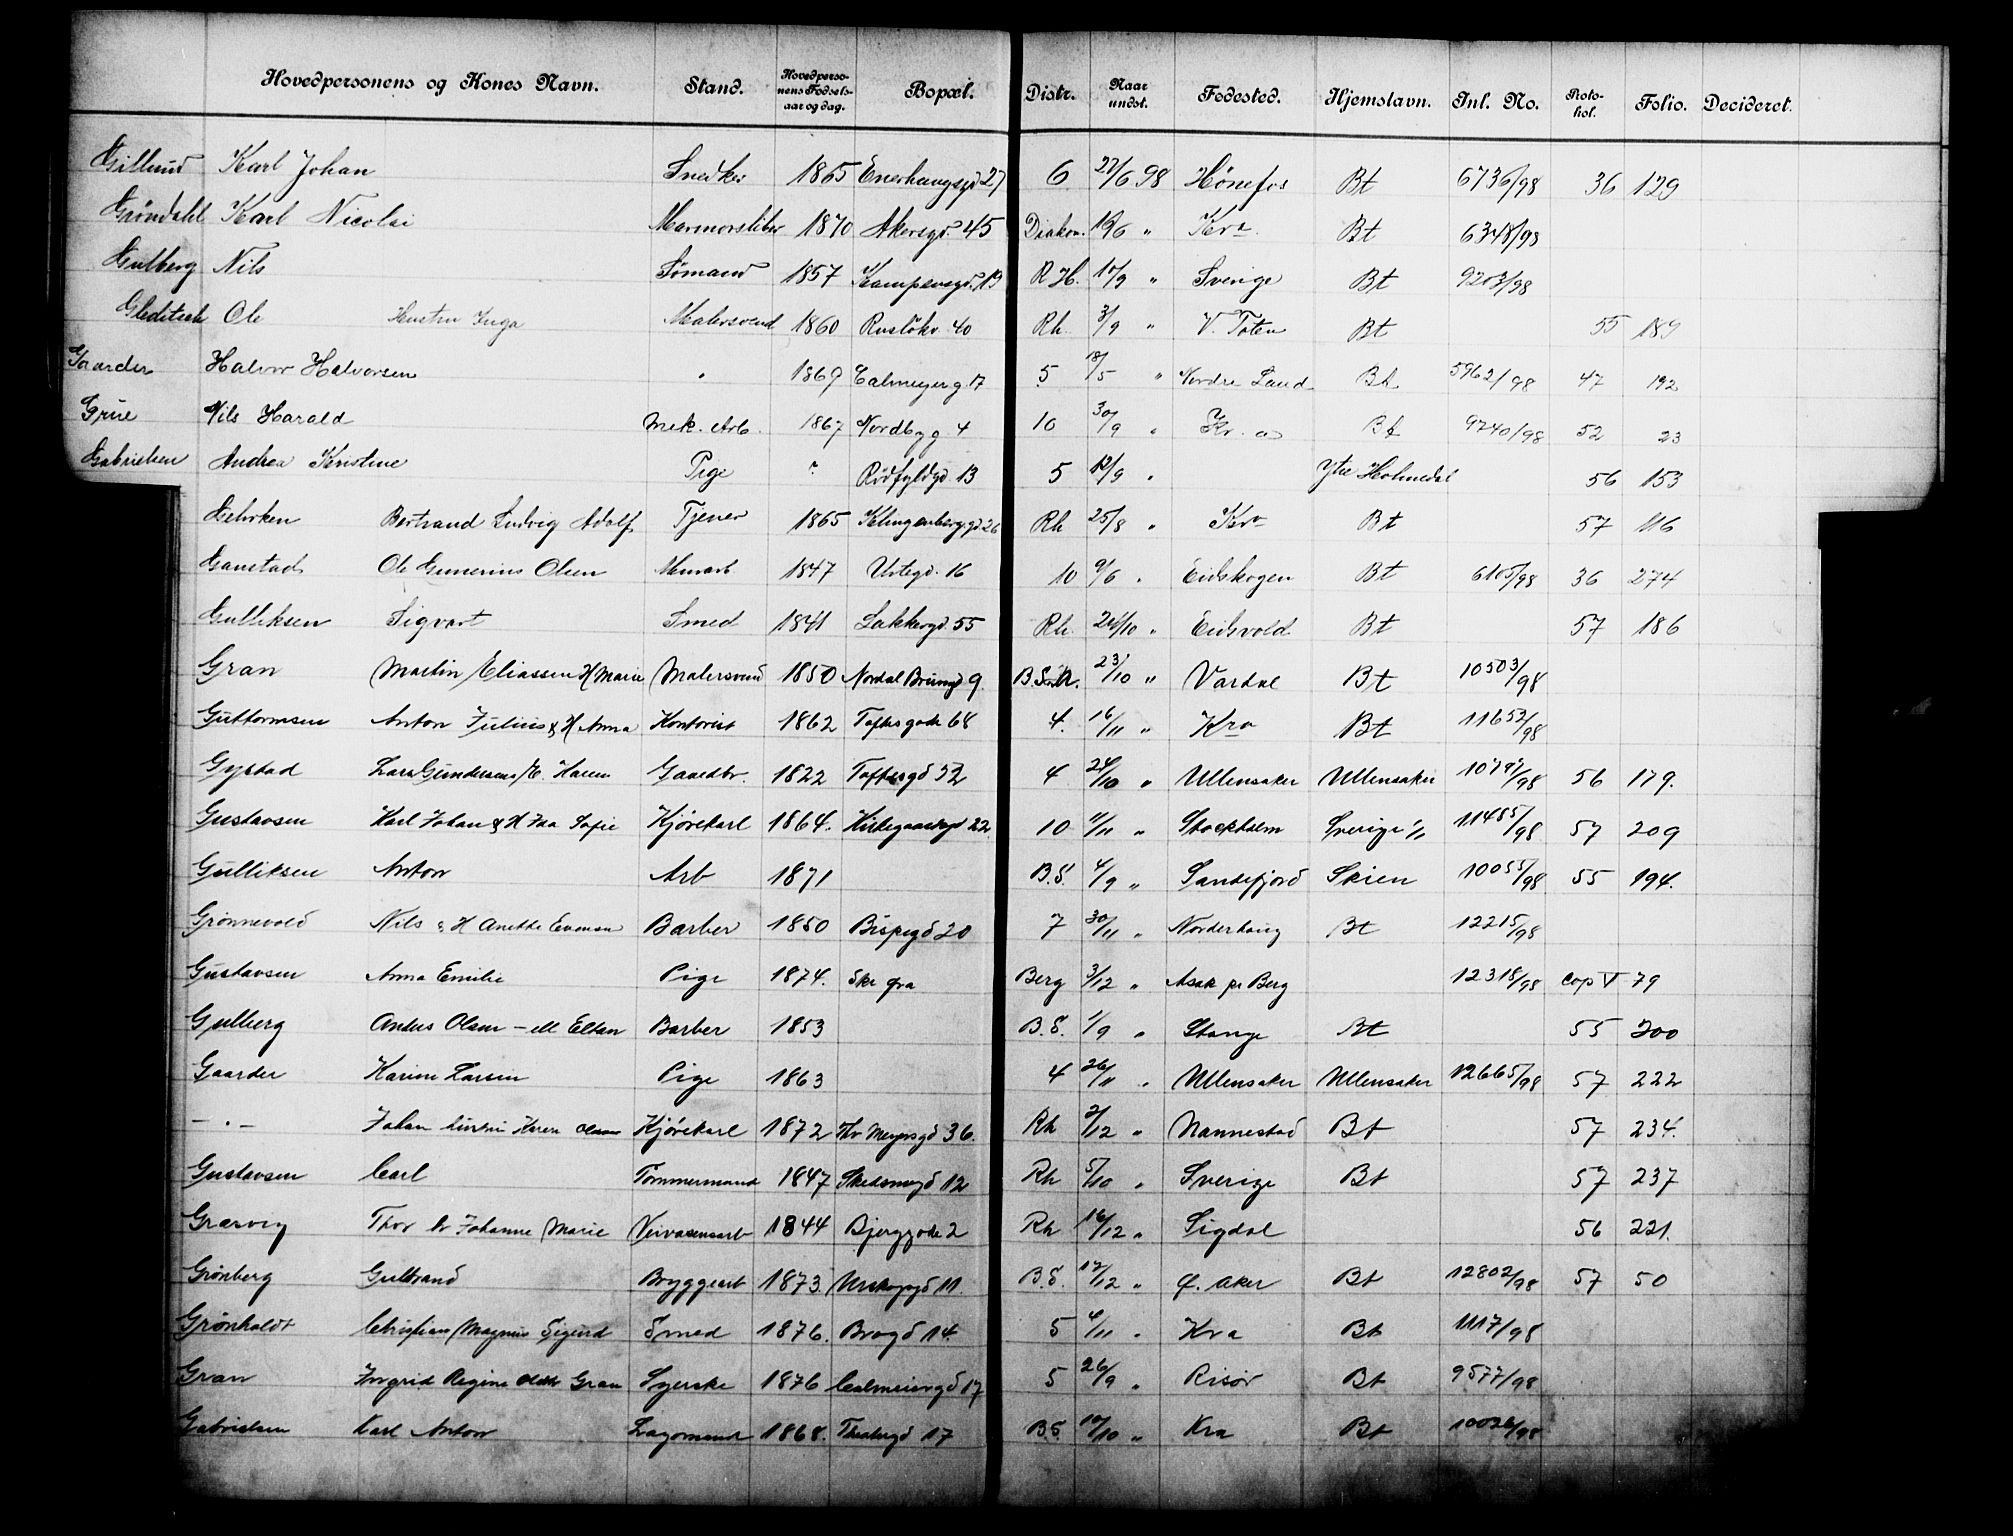 Hovedpersonens og Kones Navn. Stand. Hovedpersonens Fødselsaar og dag. Bopæl. Distr. Naar undst. Fødested. Hjemstavn. Inl. No. Protokol. Folio. Decideret.
Gillund Karl Johan Snedker 1865 Enerhaugsgd 27 6 22/6 98 Hønefos Bt 6736/98 36 129
Grøndahl Karl Nicolai Marmorsliber 1870 Akersgd. 45 Diakon. " Kra. Bt 6348/98
Gulberg Nils Sømand 1857 Kampensgd. 19 R.H. 17/9 " Sverige Bt 9203/98
Gleditsch Ole Hustru Inga Malersvend 1860 Ruseløkv. 40 Rh. 3/9 " V. Toten Bt 55 189
Gaarder Halvor Halvorsen " 1869 Calmeyerg. 17 5 18/5 " Nordre Land Bt 5962/98 47 192
Grue Nils Harald Mek. Arb. 1867 Nordbyg. 4 10 30/9 " Kr.a Bt 9740/98 52 23
Gabrielsen Andrea Kristine Pige " Rødfyldgd. 13 5 12/9 " Ytre Holmedal 56 153
Gehrken Bertrand Ludvig Adolf Tjener 1865 Klingenberggd 26 Rh 25/8 " Kra Bt 57 116
Ganstad Ole Gunerius Olsen Murarb. 1847 Urtegd. 16 10 9/6 " Eidskogen Bt 6105/98 36 274
Gulliksen Sigvart Smed 1841 Lakkergd. 55 Rh. 24/10 " Eidsvold Bt 57 186
Gran Martin Eliassen H Marie Malersvend 1850 Nordal Brunsgd 9. 23/10 " Vardal Bt 10503/98
Guttormsen Anton Julius & H Anna Kontorist 1862 Toftesgade 68 4. 16/11 " Kra Bt 11652/98
Gystad Lars Gundersen H. Karen Gaardbr. 1822 Toftesgd 52 4 24/10 " Ullensaker Ullensaker 10797/98 56 179.
Gustavsen Karl Johan & H Ida Sofie Kjørekarl 1864. Kirkegaardsgd 22. 10 11/11 " Stockholm Sverige 11455/98 57 209
Gulliksen Anton Arb 1871 B.S. 4/9 " Sandefjord Skien 10055/98 55 194.
Grønnevold Nils & H Anette Evensen Barber 1850 Bispegd 20 7 30/11 " Norderhoug Bt 12215/98
Gustavsen Anna Emilie Pige 1874. Berg 3/12 " Asak pr Berg 12318/98 cop V 79
Gulberg Olsen - Barber 1853 B.S. 1/9 " Stange Bt 55 200
Gaarder Karine Larsen Pige 1863 4 26/11 " Ullensaker Ullensaker 12665/98 57 222
- " - Johan hustru Karen Olsen Kjørekarl 1872 Thv Meyersgd 36. Rh 2/12 " Nannestad Bt 57 234.
Gustavsen Carl Tømmermand 1847 Skedsmogd 12 Rh 5/10 " Sverige Bt 57 237
Græsvig Thor h Johanne Marie Veivæsensarb 1844 Bjerggade 2 Rh 16/12 " Sigdal 56 221.
Grønberg Gulbrand Bryggearb 1873. Urskoggd 11. B.S. 12/12 " Ø. Aker Bt 12802/98 57 50
Grønholdt Christian Magnus Sigurd Smed 1876. Brogd 14. 5 4/11 " Kra Bt 1117/98
Gran Ingrid Regine Gran Syerske 1876 Calmeiergd 17 5 26/9 " Risør Bt 9577/98
Gabrielsen Karl Anton 1868. Theatergd 17 B.S. 10/10 " Kra Bt 10026/98